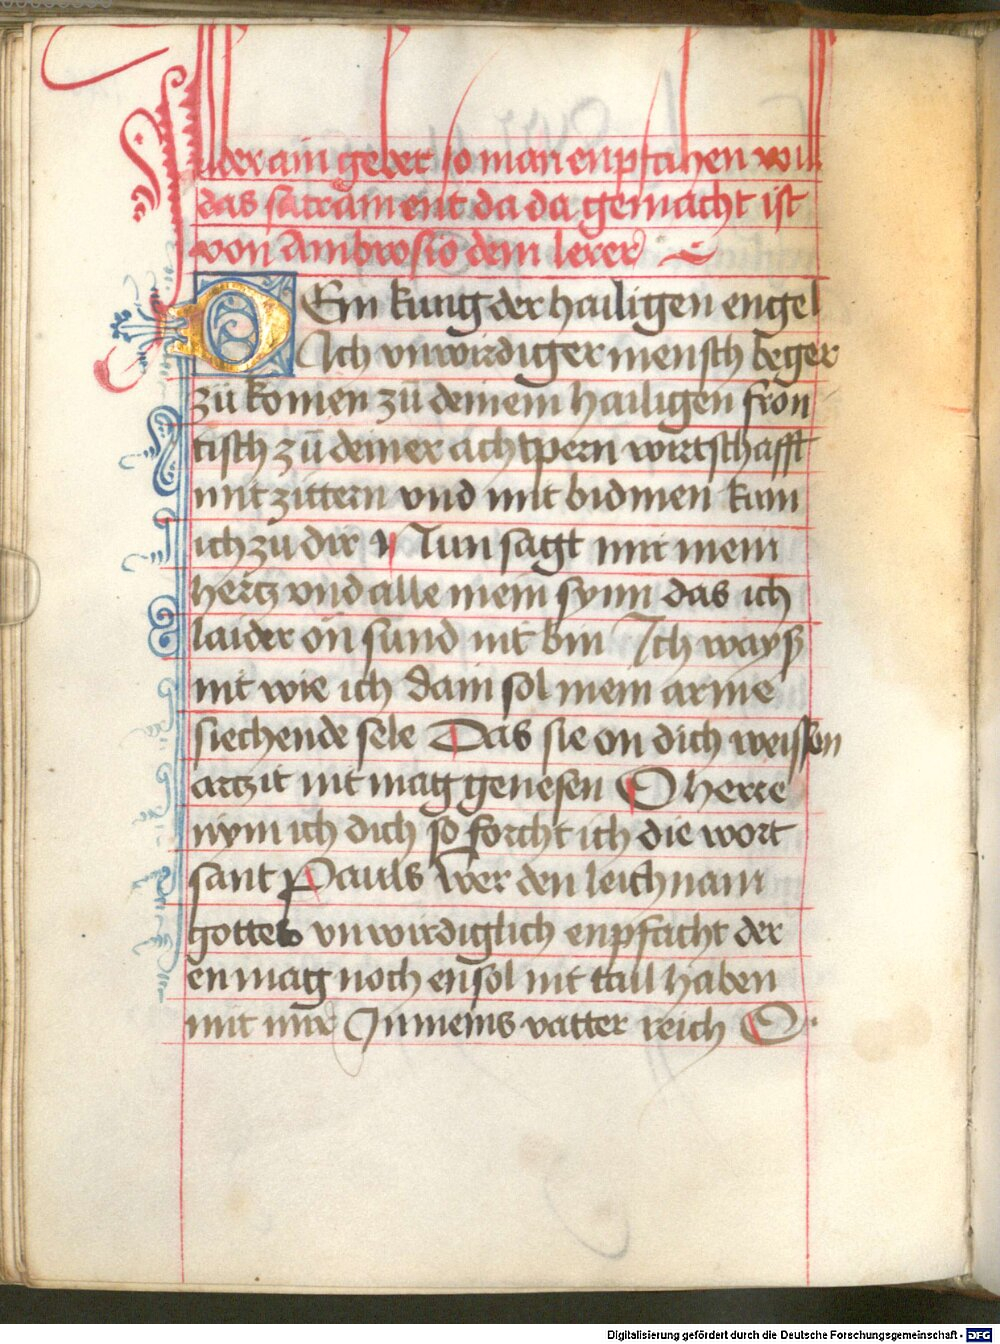 Aber ain gebet so man enpfahen wil
das sacrament da da gemacht ist
von Ambrosio dem lerer
O Ein kung der hailigen engel
Ich vnwirdiger mensch beger
zu komen zu deinem hailigen fron
tisch zu deiner achtpern wirtschafft
mit zittern vnd mit bidmen kum
ich zu dir Nun sagt mir mein
hertz vnd alle mein synn das ich
laider on sund nit bin Ich wayß
nit wie ich dain sol mein arme
siechende sele Das sie on dich weissen
artzit nit mag genesen O herre
nym ich dich so forcht ich die wort
sant Pauls Wer den leichnam
gottes vnwirdiglich enpfacht der
en mag noch en sol nit tail haben
mit mir In meins vatter reich O
Digitalisierung gefördert durch die Deutsche Forschungsgemeinschaft - DFG